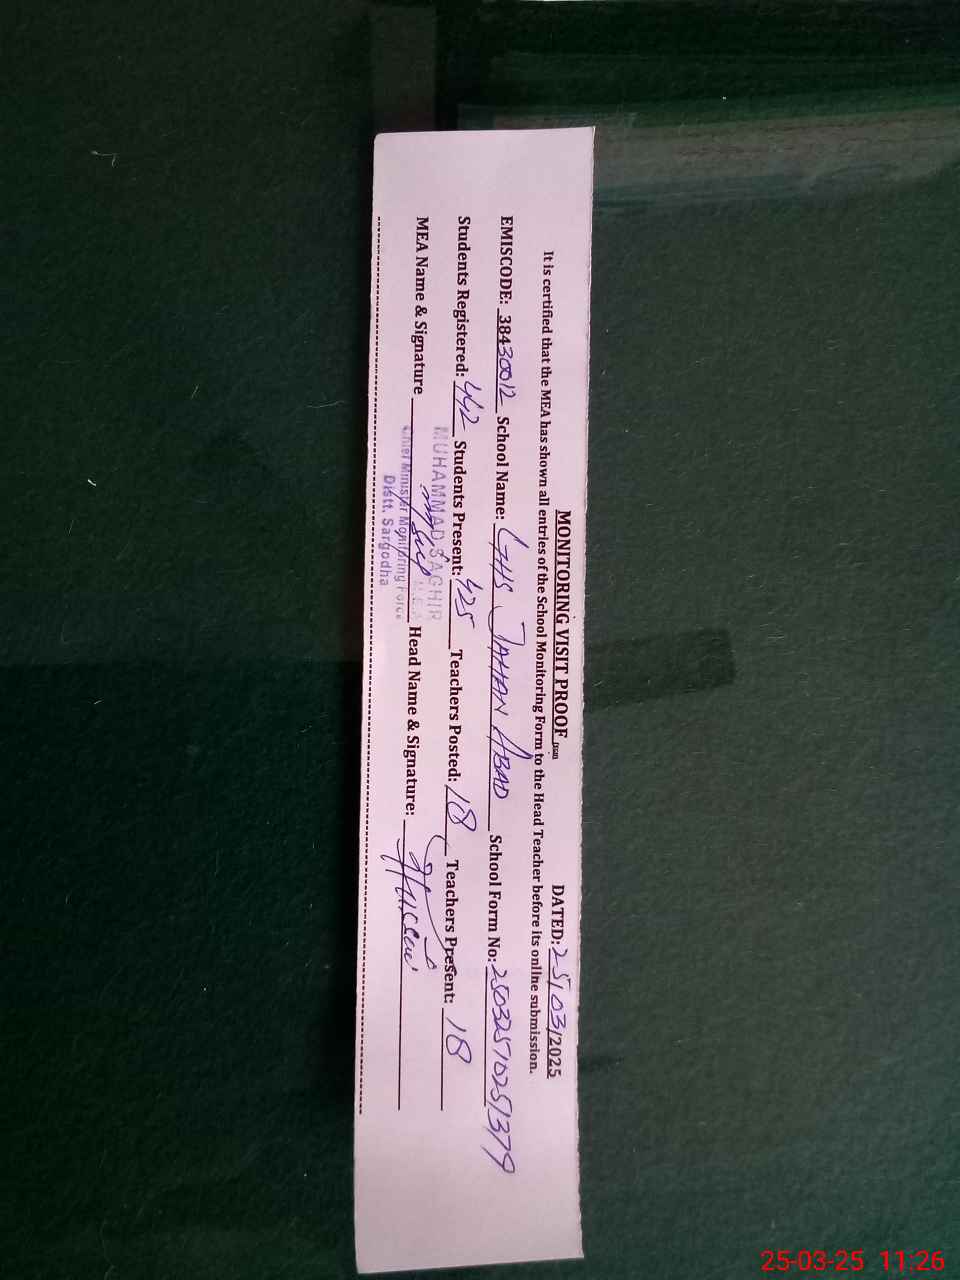 MONITORING VISIT PROOF DATED: 25/03/2025
It is certified that the MEA has shown all entries of the School Monitoring Form to the Head Teacher before its online submission.
EMISCODE: 38430012 School Name: GHS JAHAN ABAD School Form No: 25032510251379
Students Registered: 442 Students Present: 425 Teachers Posted: 18 Teachers Present: 18
MUHAMMAD SAGHIR
MEA Name & Signature Head Name & Signature:
Chief Minister Monitoring Force
Distt. Sargodha
25-03-25 11:26